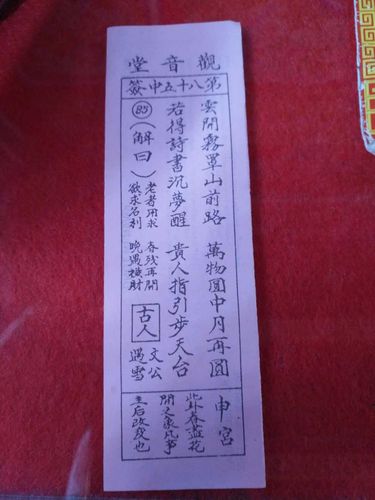 觀音堂
第八十五中簽
雲開霧罩山前路　萬物圓中月再圓
若得詩書沉夢醒　貴人指引步天台
85（解曰）
老者用求　春残再開
欲求名利　晩遇横財
古人
文公
遇雪
申宮
此卦春盡花
開之象凡事
主后改变也